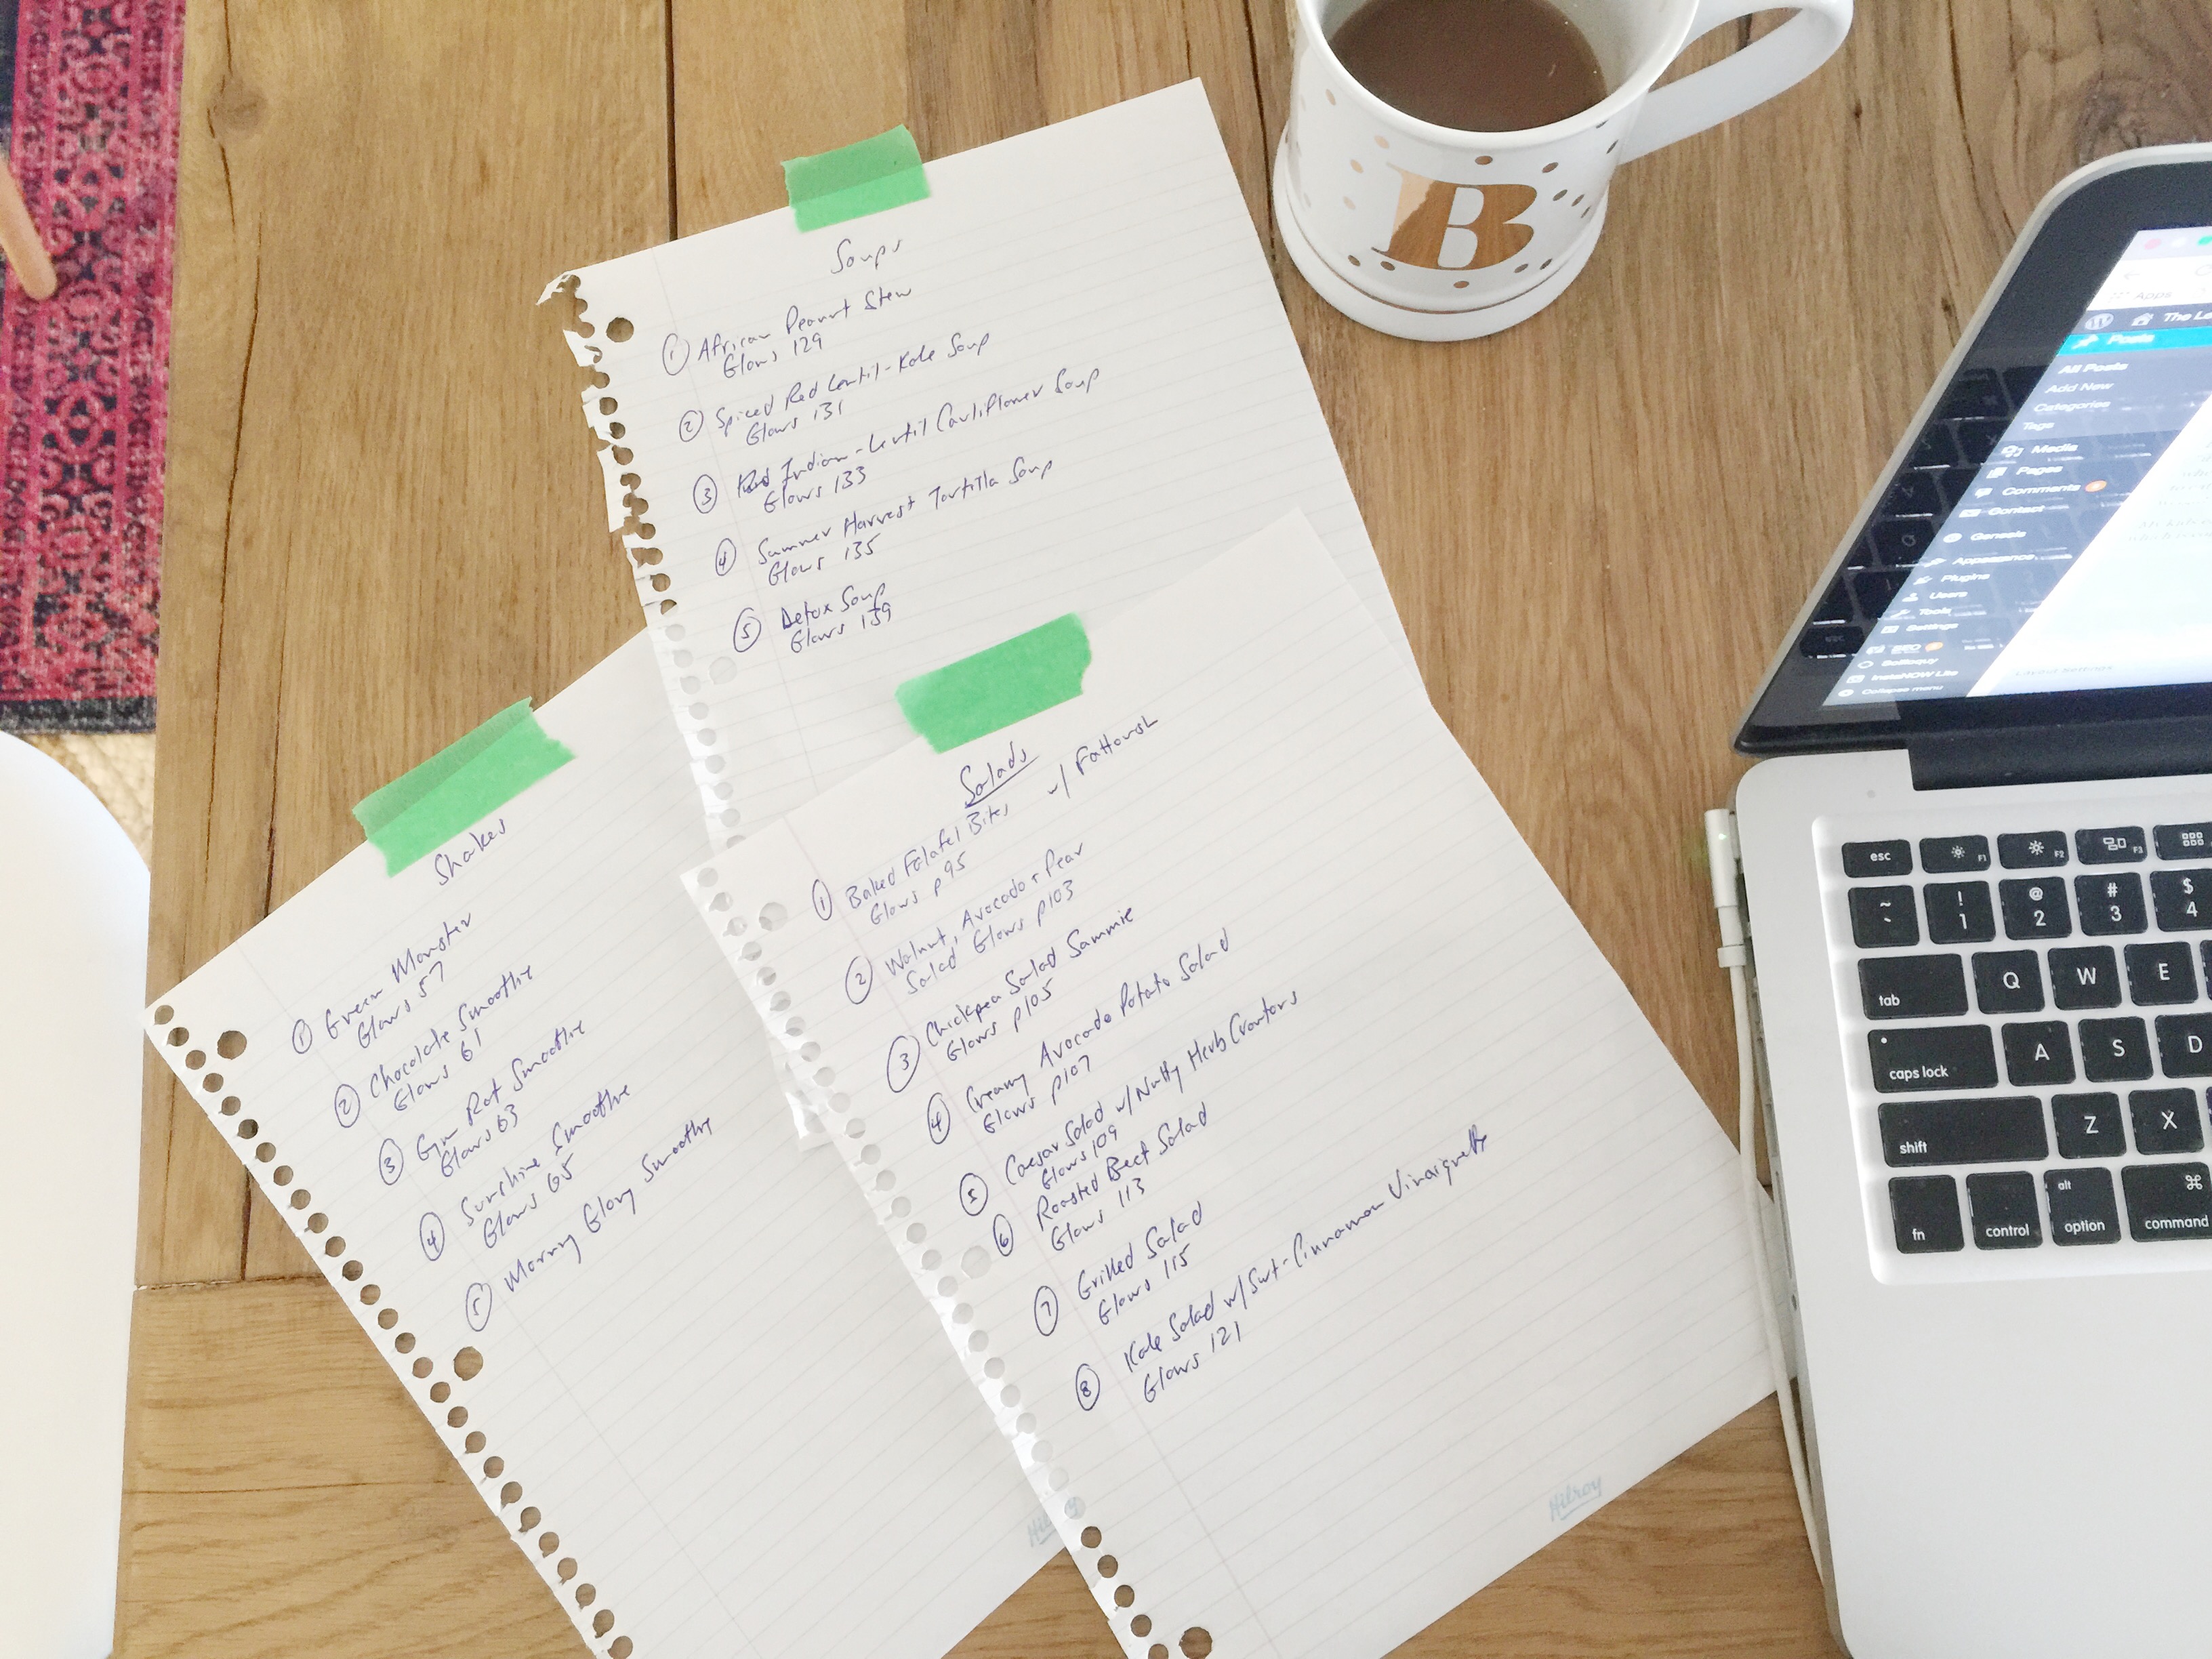 Soups
① African Peanut Stew
Glows 129
② Spiced Red Lentil-Kale Soup
Glows 131
③ Indian-Lentil Cauliflower Soup
Glows 133
④ Summer Harvest Tortilla Soup
Glows 135
⑤ Detox Soup
Glows 139
Shakes
① Green Monster
Glows 57
② Chocolate Smoothie
Glows 61
③ Gym Rat Smoothie
Glows 63
④ Sunshine Smoothie
Glows 65
⑤ Morning Glory Smoothie
Hilroy
Salads
① Baked Falafel Bites w/ Fattoush
Glows p95
② Walnut, Avocado + Pear
Salad Glows p103
③ Chickpea Salad Sammie
Glows p105
④ Creamy Avocado Potato Salad
Glows p107
⑤ Caesar Salad w/ Nutty Herb Croutons
Glows 109
⑥ Roasted Beet Salad
Glows 113
⑦ Grilled Salad
Glows 115
⑧ Kale Salad w/ Swt-Cinnamon Vinaigrette
Glows 121
Hilroy
B
Apps
The Le
Posts
All Posts
Add New
Categories
Tags
Media
Pages
Comments
Contact
Genesis
Appearance
Plugins
Users
Tools
Settings
SEO
Soliloquy
InstaNOW Lite
Collapse menu
esc F1 F2 F3
~ ` ! 1 @ 2 # 3 $ 4
tab Q W E
caps lock A S D
shift Z X
fn control alt option ⌘ command